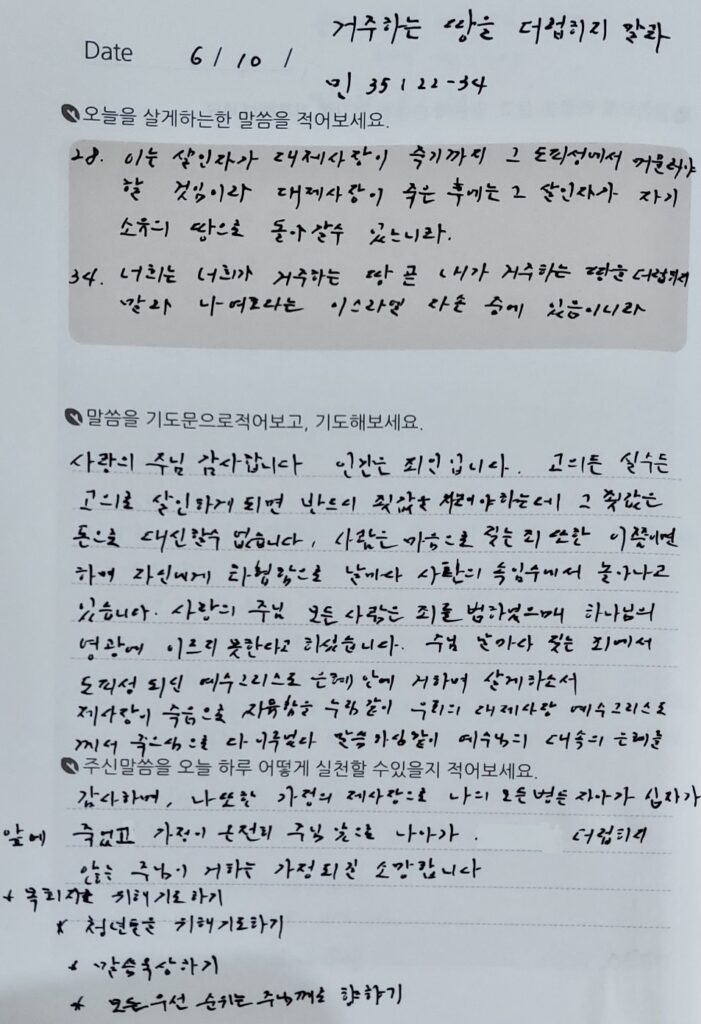 거주하는 땅을 더럽히지 말라
Date 6 / 10 /
민 35 : 22-34
오늘을 살게하는한 말씀을 적어보세요.
28. 이는 살인자가 대제사장이 죽기까지 그 도피성에서 머물러야
할 것임이라 대제사장이 죽은 후에는 그 살인자가 자기
소유의 땅으로 돌아갈수 있느니라.
34. 너희는 너희가 거주하는 땅 곧 내가 거주하는 땅을 더럽히지
말라 나 여호와는 이스라엘 자손 중에 있음이니라
말씀을 기도문으로적어보고, 기도해보세요.
사랑의 주님 감사합니다 인간은 죄인입니다. 고의든 실수든
고의로 살인하게 되면 반드시 죗값을 치러야하는데 그 죗값은
돈으로 대신할수 없습니다. 사람은 마음으로 짓는 죄 또한 이쯤이면
하며 자신에게 타협함으로 날마다 사탄의 속임수에서 놀아나고
있습니다. 사랑의 주님 모든 사람은 죄를 범하였으매 하나님의
영광에 이르지 못한다고 하십습니다. 주님 날마다 짓는 죄에서
도피성 되신 예수그리스도 은혜 안에 거하며 살게하소서
제사장이 죽음으로 자유함을 누림같이 우리의 대제사장 예수그리스도
께서 죽으심으로 다 이루었다 말씀하심같이 예수님의 대속의 은혜를
주신말씀을 오늘 하루 어떻게 실천할 수있을지 적어보세요.
감사하며, 나 또한 가정의 제사장으로 나의 모든 병든 자아가 십자가
앞에 죽었고 가정이 온전히 주님 앞으로 나아가. 더럽히지
않는 주님이 거하는 가정되길 소망합니다
* 목회자를 위해 기도하기
* 청년들을 위해 기도하기
* 말씀묵상하기
* 모든 우선 순위는 주님께로 향하기